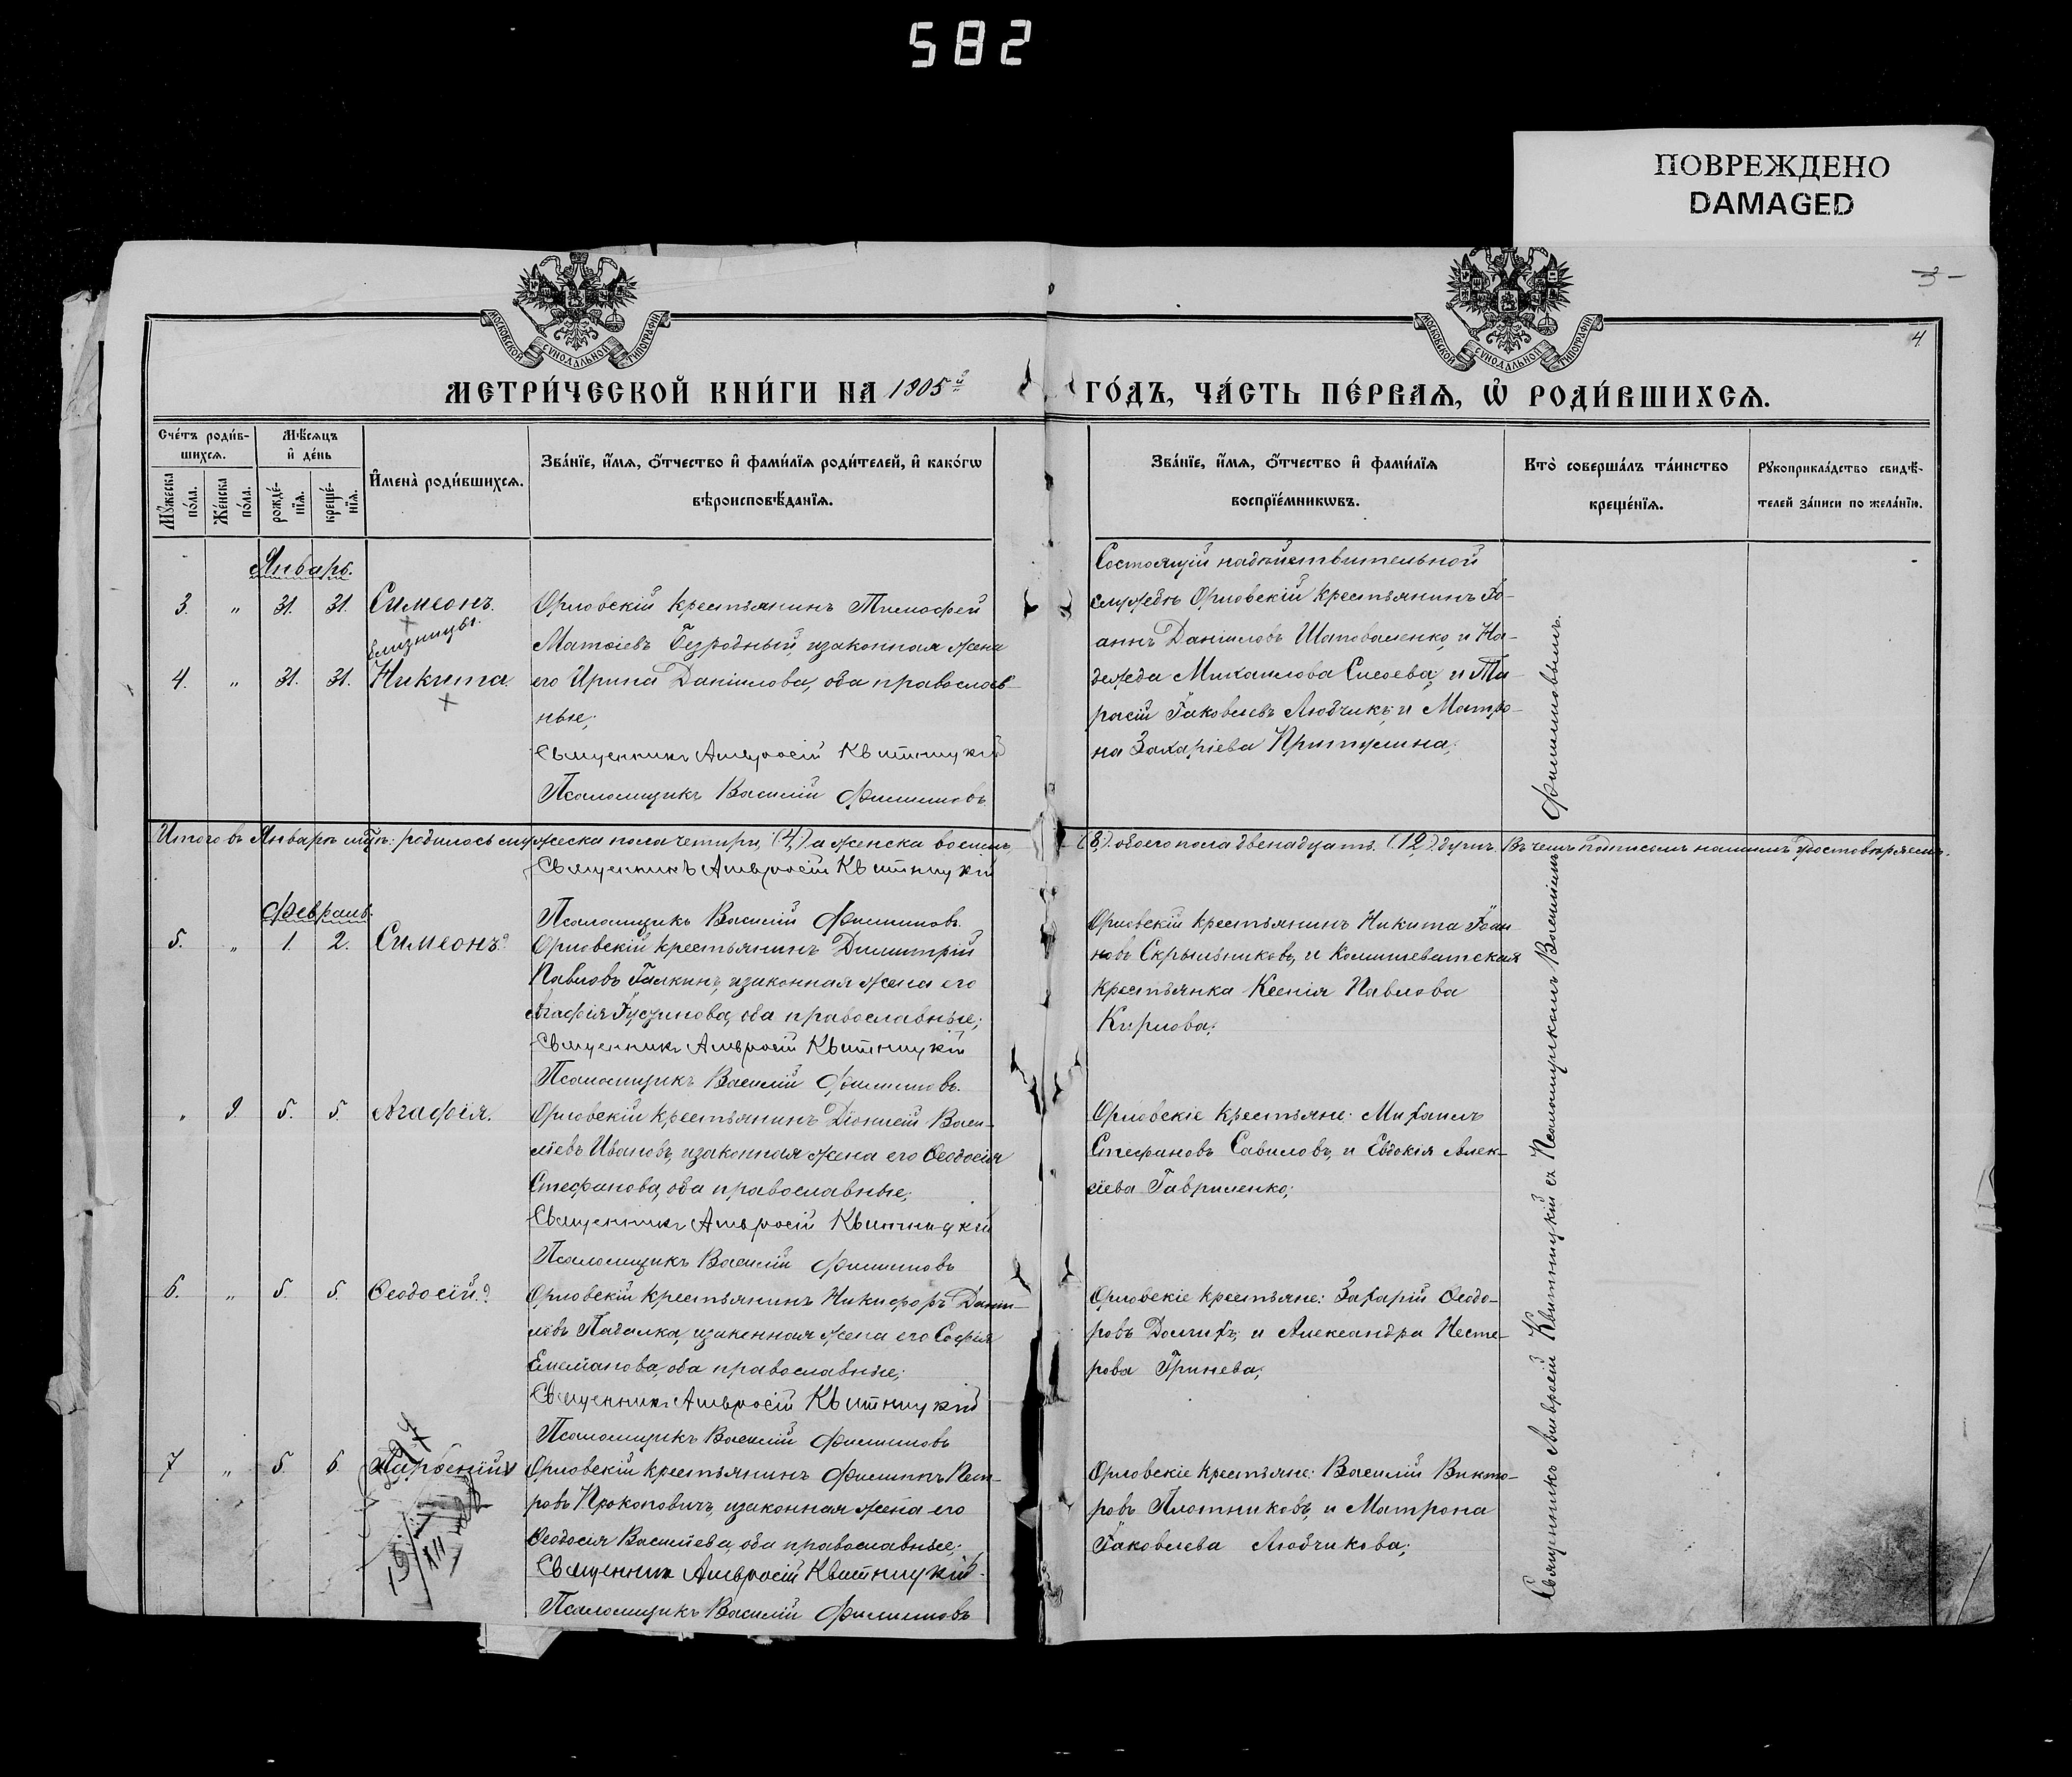 582
ПОВРЕЖДЕНО
DAMAGED
3 -
4
МОСКОВСКОЙ СѴНОДАЛЬНОЙ ТИПОГРАФІИ
МОСКОВСКОЙ СѴНОДАЛЬНОЙ ТИПОГРАФІИ
МЕТРИ́ЧЕСКОЙ КНИ́ГИ НА 1905й ГО́ДЪ, ЧА́СТЬ ПЕ́РВАѦ, Ѡ РОДИ́ВШИХСѦ.
Сче́тъ роди́в-
шихсѧ.
Мꙋ́жеска по́ла.
Же́нска по́ла.
Мѣ́сѧцъ
и҆ де́нь
рожде́-
нїѧ.
креще́-
нїѧ.
И҆мена̀ роди́вшихсѧ.
Зва́нїе, и҆́мѧ, ѻ҆́тчество и҆ фами́лїѧ роди́телей, и҆ како́гѡ
вѣроисповѣ́данїѧ.
Зва́нїе, и҆́мѧ, ѻ҆́тчество и҆ фами́лїѧ
воспрїе́мникѡвъ.
Кто̀ соверша́лъ та́инство
креще́нїѧ.
Рꙋкоприкла́дство свидѣ́-
телей за́писи по жела́нїю.
Январь.
3. " 31. 31. Симеонъ.
близнецы.
4. " 31. 31. Никита.
Орловскій крестьянинъ Тимофей
Матѳіевъ Безродный, изаконная жена
его Ирина Даніилова, оба православ-
ные;
Священникъ Амвросій Квитницкій
Псаломщикъ Василій Филипповъ.
Состоящій надѣйствительной
службѣ Орловскій крестьянинъ Іо-
аннъ Даніиловъ Шаповаленко, и На-
дежда Михаилова Сысоева, и Та-
расій Іаковлевъ Людчикъ, и Матро-
на Захаріева Притулина;
Итого въ Январѣ мцѣ: родилось мужеска пола четыри, (4,) а женска восемь,
(8,) обоего пола двенадцать. (12,) душъ. Въ чемъ подписомъ нашимъ удостовѣряемъ.
Священникъ Амвросій Квитницкій
Псаломщикъ Василій Филипповъ.
Февраль.
5. " 1. 2. Симеонъ.
Орловскій крестьянинъ Димитрій
Павловъ Галкинъ, изаконная жена его
Агафія Іустинова, оба православные;
Священникъ Амвросій Квитницкій
Псаломщикъ Василій Филипповъ.
Орловскій крестьянинъ Никита Іоан-
новъ Скрыльниковъ, и Комышеватская
крестьянка Ксенія Павлова
Кирлова;
" 9. 5. 5. Агафія.
Орловскій крестьянинъ Діонисій Васи-
ліевъ Ивановъ, изаконная жена его Ѳеодосія
Стефанова, оба православные;
Священникъ Амвросій Квитницкій
Псаломщикъ Василій Филипповъ
Орловскіе крестьяне: Михаилъ
Стефановъ Савиловъ, и Евдокія Алек-
сіева Гавриленко;
6. " 5. 5. Ѳеодосій.
Орловскій крестьянинъ Никифоръ Даніи-
ловъ Падалка, изаконная жена его Софія
Емеліанова, оба православные;
Священникъ Амвросій Квитницкій
Псаломщикъ Василій Филипповъ
Орловскіе крестьяне: Захарій Ѳеодо-
ровъ Долгихъ, и Александра Несте-
рова Гринева;
7 " 5. 6. Парѳеній
Орловскій крестьянинъ Филиппъ Пет-
ровъ Прокоповичъ, изаконная жена его
Ѳеодосія Васильева, оба православные;
Священникъ Амвросій Квитницкій.
Псаломщикъ Василій Филипповъ
Орловскіе крестьяне: Василій Викто-
ровъ Плотниковъ, и Матрона
Іаковлева Людчикова;
Священникъ Амвросій Квитницкій съ Псаломщикомъ Василіемъ Филипповымъ.